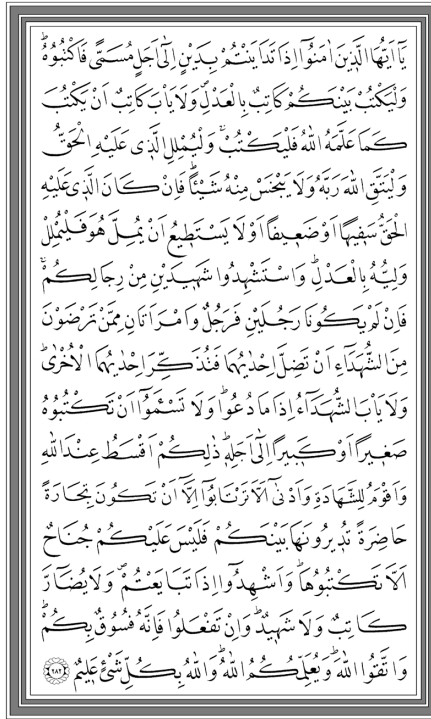 يَٓا اَيُّهَا الَّذ۪ينَ اٰمَنُٓوا اِذَا تَدَايَنْتُمْ بِدَيْنٍ اِلٰٓى اَجَلٍ مُسَمًّى فَاكْتُبُوهُۜ
وَلْيَكْتُبْ بَيْنَكُمْ كَاتِبٌ بِالْعَدْلِۖ وَلَا يَأْبَ كَاتِبٌ اَنْ يَكْتُبَ
كَمَا عَلَّمَهُ اللّٰهُ فَلْيَكْتُبْۚ وَلْيُمْلِلِ الَّذ۪ي عَلَيْهِ الْحَقُّ
وَلْيَتَّقِ اللّٰهَ رَبَّهُ وَلَا يَبْخَسْ مِنْهُ شَيْـٔاًۜ فَاِنْ كَانَ الَّذ۪ي عَلَيْهِ
الْحَقُّ سَف۪يهاً اَوْ ضَع۪يفاً اَوْ لَا يَسْتَط۪يعُ اَنْ يُمِلَّ هُوَ فَلْيُمْلِلْ
وَلِيُّهُ بِالْعَدْلِۜ وَاسْتَشْهِدُوا شَه۪يدَيْنِ مِنْ رِجَالِكُمْۚ
فَاِنْ لَمْ يَكُونَا رَجُلَيْنِ فَرَجُلٌ وَامْرَاَتَانِ مِمَّنْ تَرْضَوْنَ
مِنَ الشُّهَدَٓاءِ اَنْ تَضِلَّ اِحْدٰيهُمَا فَتُذَكِّرَ اِحْدٰيهُمَا الْاُخْرٰىۜ
وَلَا يَأْبَ الشُّهَدَٓاءُ اِذَا مَا دُعُواۜ وَلَا تَسْـَٔمُٓوا اَنْ تَكْتُبُوهُ
صَغ۪يراً اَوْ كَب۪يراً اِلٰٓى اَجَلِه۪ۜ ذٰلِكُمْ اَقْسَطُ عِنْدَ اللّٰهِ
وَاَقْوَمُ لِلشَّهَادَةِ وَاَدْنٰٓى اَلَّا تَرْتَابُٓوا اِلَّٓا اَنْ تَكُونَ تِجَارَةً
حَاضِرَةً تُد۪يرُونَهَا بَيْنَكُمْ فَلَيْسَ عَلَيْكُمْ جُنَاحٌ
اَلَّا تَكْتُبُوهَاۜ وَاَشْهِدُٓوا اِذَا تَبَايَعْتُمْۖ وَلَا يُضَٓارَّ
كَاتِبٌ وَلَا شَه۪يدٌۜ وَاِنْ تَفْعَلُوا فَاِنَّهُ فُسُوقٌ بِكُمْۜ
وَاتَّقُوا اللّٰهَۜ وَيُعَلِّمُكُمُ اللّٰهُۜ وَاللّٰهُ بِكُلِّ شَيْءٍ عَل۪يمٌ ٢٨٢